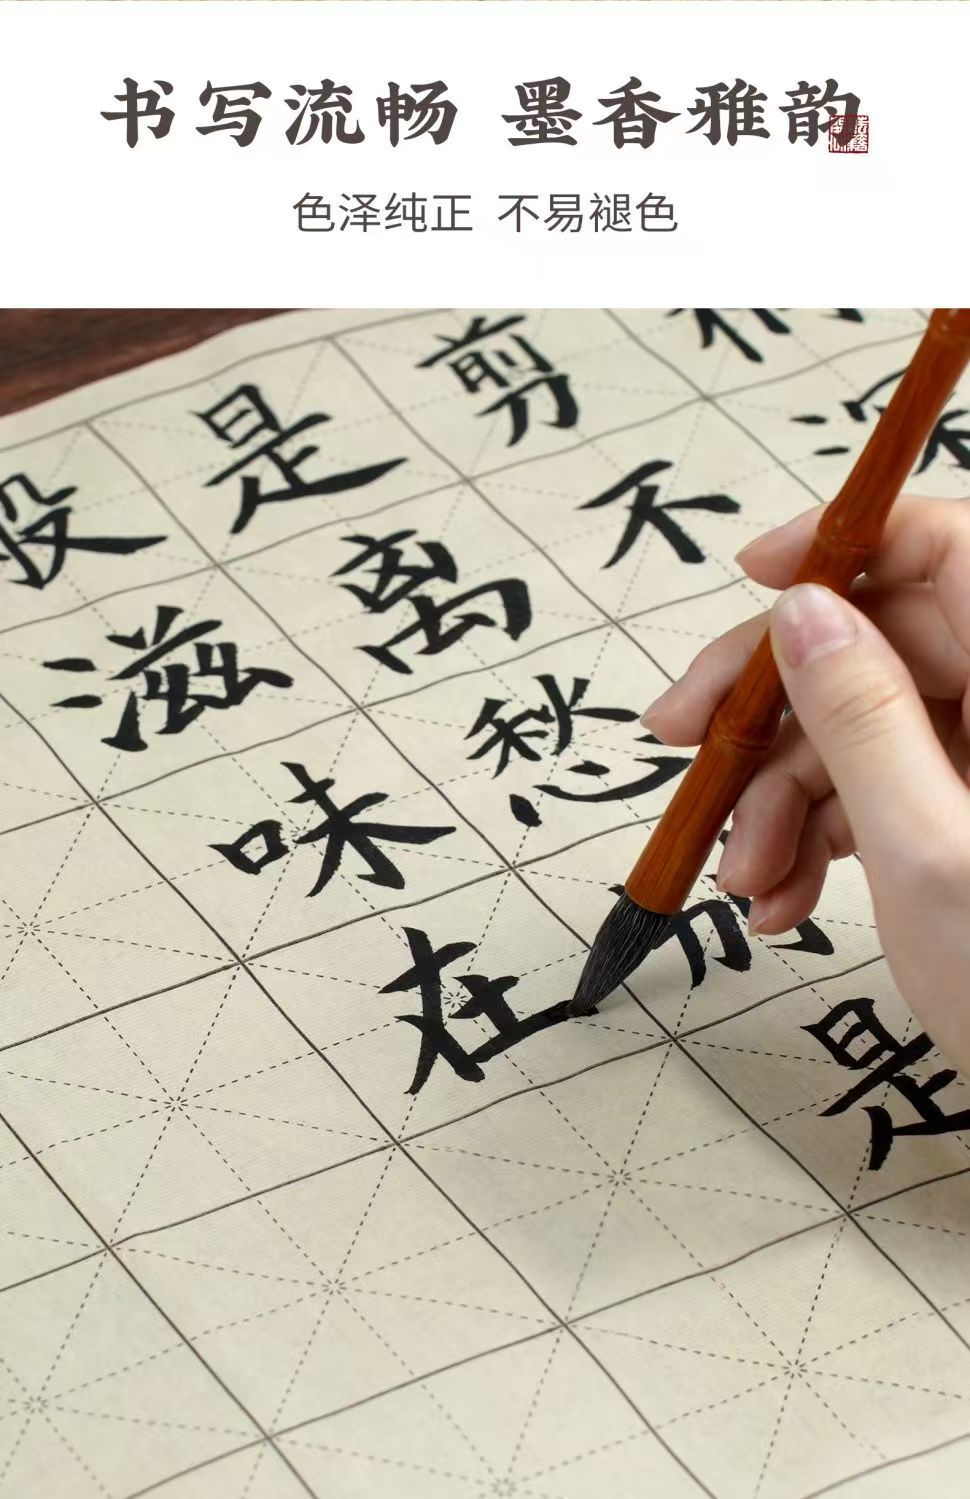 书写流畅 墨香雅韵
色泽纯正 不易褪色
深
剪不
是离愁别是
滋味在